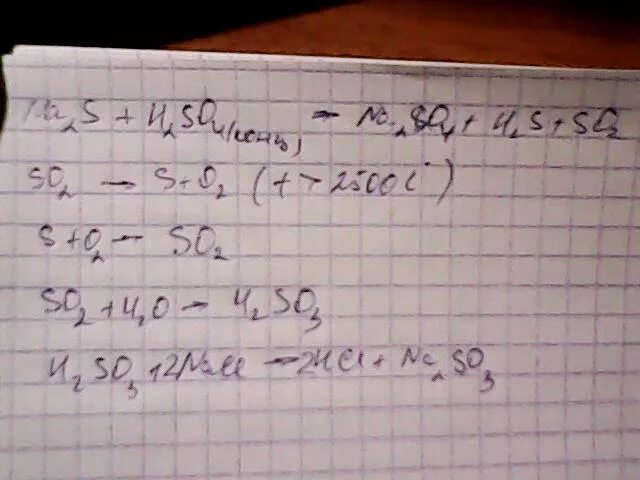 Na₂S + H₂SO₄(конц) → Na₂SO₄ + H₂S + SO₂
SO₂ → S + O₂ (t > 2500C°)
S + O₂ → SO₂
SO₂ + H₂O → H₂SO₃
H₂SO₃ + 2NaCl → 2HCl + Na₂SO₃